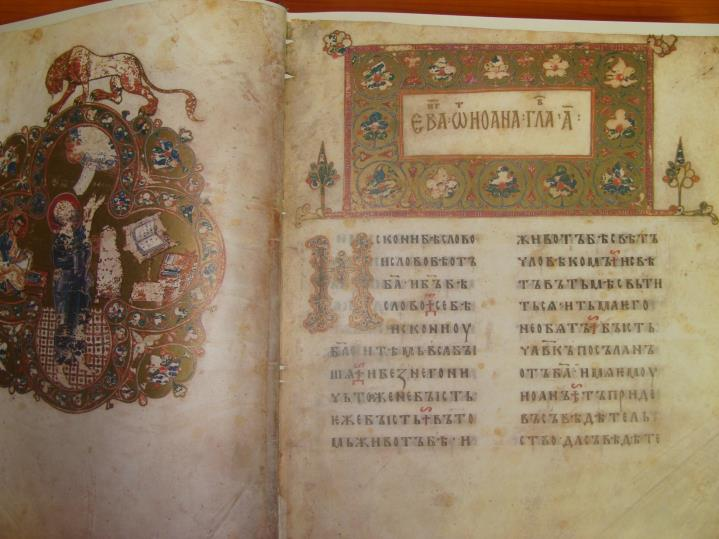 ЕВА·Ѿ ИОАНА·ГЛА·А҃:
ИСКОНИБѢСЛОВО
ИСЛОВОБѢОТЪ
БА҃ИБЪ҃БѢ
СЛОВО·СЕБѢ
ИСКОНИОУ
БА҃·ИТѢМЬВСАБЫ
ШѦ·ИБЕЗНЕГОНИ
ЧЬТОЖЕНЕБЫСТЬ
ѤЖЕБЫСТЬ·ВЪТО
МЬЖИВОТЪБѢ·И
ЖИВОТЪБѢСВѢТЪ
ЧЛОВѢКОМЪ·ИСВѢ
ТЪВЪТЬМѢСВЬТИ
ТЬСѦ·ИТЬМАѤГО
НЕОБѦТЪ·БЫСТЬ
ЧЛ҃ВКЪПОСЪЛАНЪ
ОТЪБА҃·ИМѦѤМОУ
ИОАНЪ·ТЪПРИДЕ
ВЪСЪВѢДѢТЕЛЬ
СТВО·ДАСЪВѢДѢТЕ